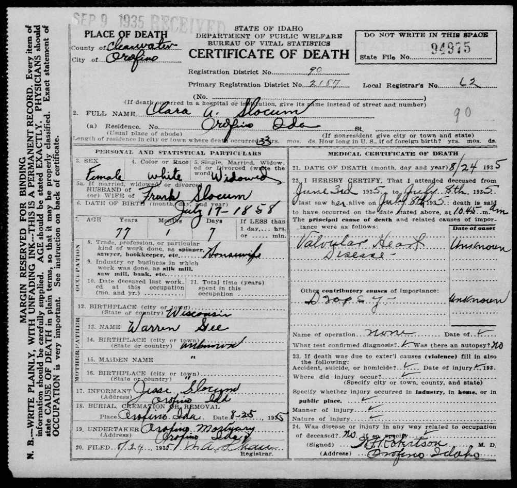 SEP 9 1935 RECEIVED
STATE OF IDAHO
DEPARTMENT OF PUBLIC WELFARE
BUREAU OF VITAL STATISTICS
CERTIFICATE OF DEATH
DO NOT WRITE IN THIS SPACE
State File No. 94975
PLACE OF DEATH
County of Clearwater
City of Orofino
Registration District No. 90
Primary Registration District No. 2187
Local Registrar's No. 62
(No.
(If death occurred in a hospital or institution, give its name instead of street and number)
90
2. FULL NAME Clara A. Slocum
(a) Residence. No. Orofino Ida
(Usual place of abode)
(If nonresident give city or town and state)
Length of residence in city or town where death occurred 33 yrs. mos. ds. How long in U. S., if of foreign birth? yrs. mos. ds.
PERSONAL AND STATISTICAL PARTICULARS
3. SEX
Female
4. Color or Race
White
5. Single, Married, Widowed, or Divorced (write the word)
Widowed
5a. If married, widowed, or divorced
HUSBAND of
(or) WIFE of Frank Slocum
6. DATE OF BIRTH July 17-1858
7. AGE
YEARS
77
MONTHS
1
DAYS
7
If LESS than
1 day, hrs.
or min.
OCCUPATION
8. Trade, profession, or particular kind of work done, as spinner, sawyer, bookkeeper, etc. Housewife
9. Industry or business in which work was done, as silk mill, saw mill, bank, etc.
10. Date deceased last worked at this occupation (mo. and yr.)
11. Total time (years) spent in this occupation
12. BIRTHPLACE (city or town)
(State or country) Wisconsin
13. NAME Warren Gee
14. BIRTHPLACE (city or town)
(State or country) unknown
15. MAIDEN NAME "
16. BIRTHPLACE (city or town)
(State or country)
17. INFORMANT Jess Slocum
Orofino Ida
18. BURIAL CREMATION OR REMOVAL
Place Orofino Ida Date 8-25 1935
19. UNDERTAKER Orofino Mortuary
Orofino Ida
20. FILED 1935
Registrar.
MEDICAL CERTIFICATE OF DEATH
21. DATE OF DEATH (month, day and year) 8/24 1935
22. I HEREBY CERTIFY, That I attended deceased from
June 3rd 1935, to July 8th 1935
I last saw her alive on July 8th 1935 death is said
to have occurred on the date stated above, at 10:45 m
The principal cause of death and related causes of importance were as follows:
Date of onset
Valvular Heart Disease
Unknown
Other contributory causes of importance:
Dropsy
Unknown
Name of operation none Date of
What test confirmed diagnosis? Was there an autopsy? No
23. If death was due to external causes (violence) fill in also the following:
Accident, suicide, or homicide? Date of injury 193
Where did injury occur?
(Specify city or town, county, and state)
Specify whether injury occurred in industry, in home, or in public place.
Manner of injury
Nature of injury
24. Was disease or injury in any way related to occupation of deceased? No If so specify
(Signed) Robertson M. D.
(Address) Orofino Idaho
MARGIN RESERVED FOR BINDING
N. B.—WRITE PLAINLY, WITH UNFADING INK—THIS IS A PERMANENT RECORD. Every item of information should be carefully supplied. AGE should be stated EXACTLY. PHYSICIANS should state CAUSE OF DEATH in plain terms, so that it may be properly classified. Exact statement of OCCUPATION is very important. See instruction on back of certificate.